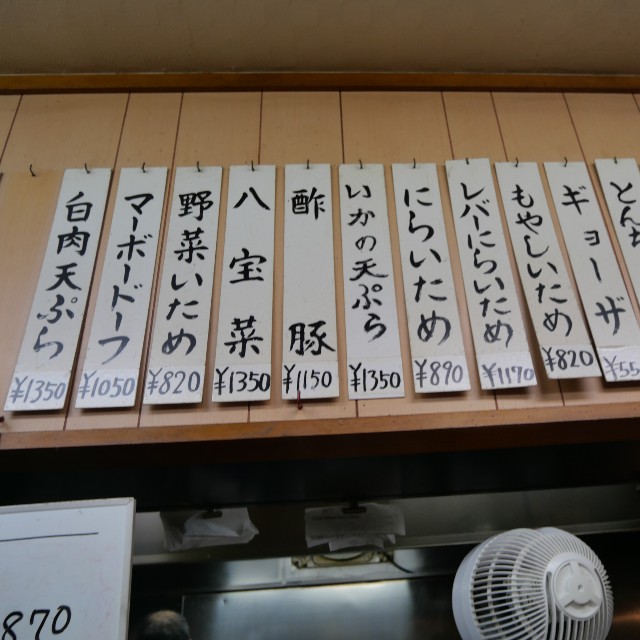 とん
ギョーザ
¥55
もやしいため
¥820
レバにらいため
¥1170
にらいため
¥870
いかの天ぷら
¥1350
酢豚
¥1150
八宝菜
¥1350
野菜いため
¥820
マーボードーフ
¥1050
白肉天ぷら
¥1350
870